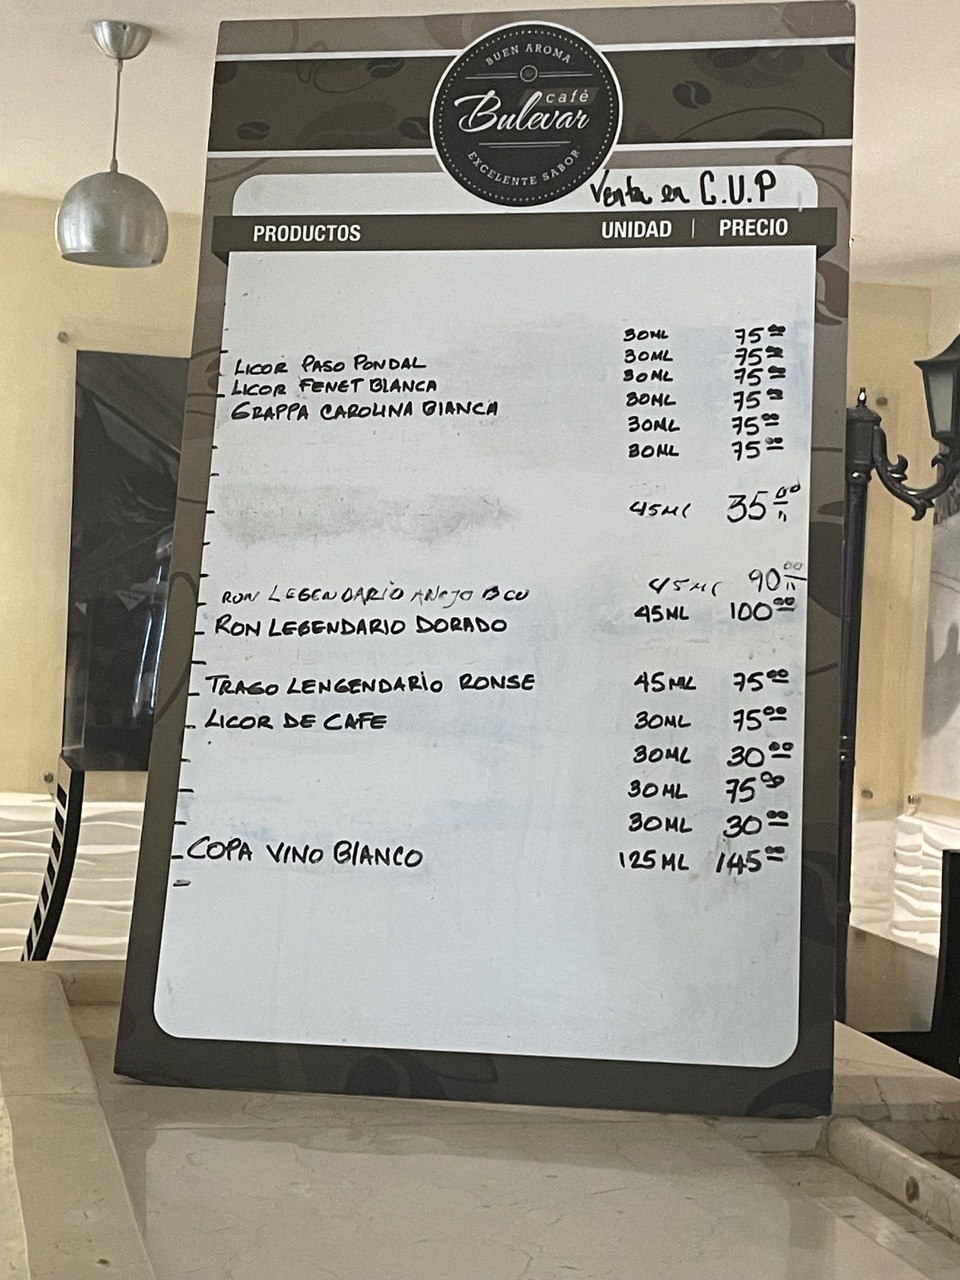 BUEN AROMA
café
Bulevar
EXCELENTE SABOR
Venta en C.U.P
PRODUCTOS UNIDAD | PRECIO
30ML 75.00
LICOR PASO PONDAL 30ML 75.00
LICOR FENET BLANCA 30ML 75.00
GRAPPA CAROLINA BIANCA 30ML 75.00
30ML 75.00
30ML 75.00
45ML 35.00
RON LEGENDARIO AÑEJO BCO 45ML 90.00
RON LEGENDARIO DORADO 45ML 100.00
TRAGO LENGENDARIO RONSE 45ML 75.00
LICOR DE CAFE 30ML 75.00
30ML 30.00
30ML 75.00
30ML 30.00
COPA VINO BLANCO 125ML 145.00